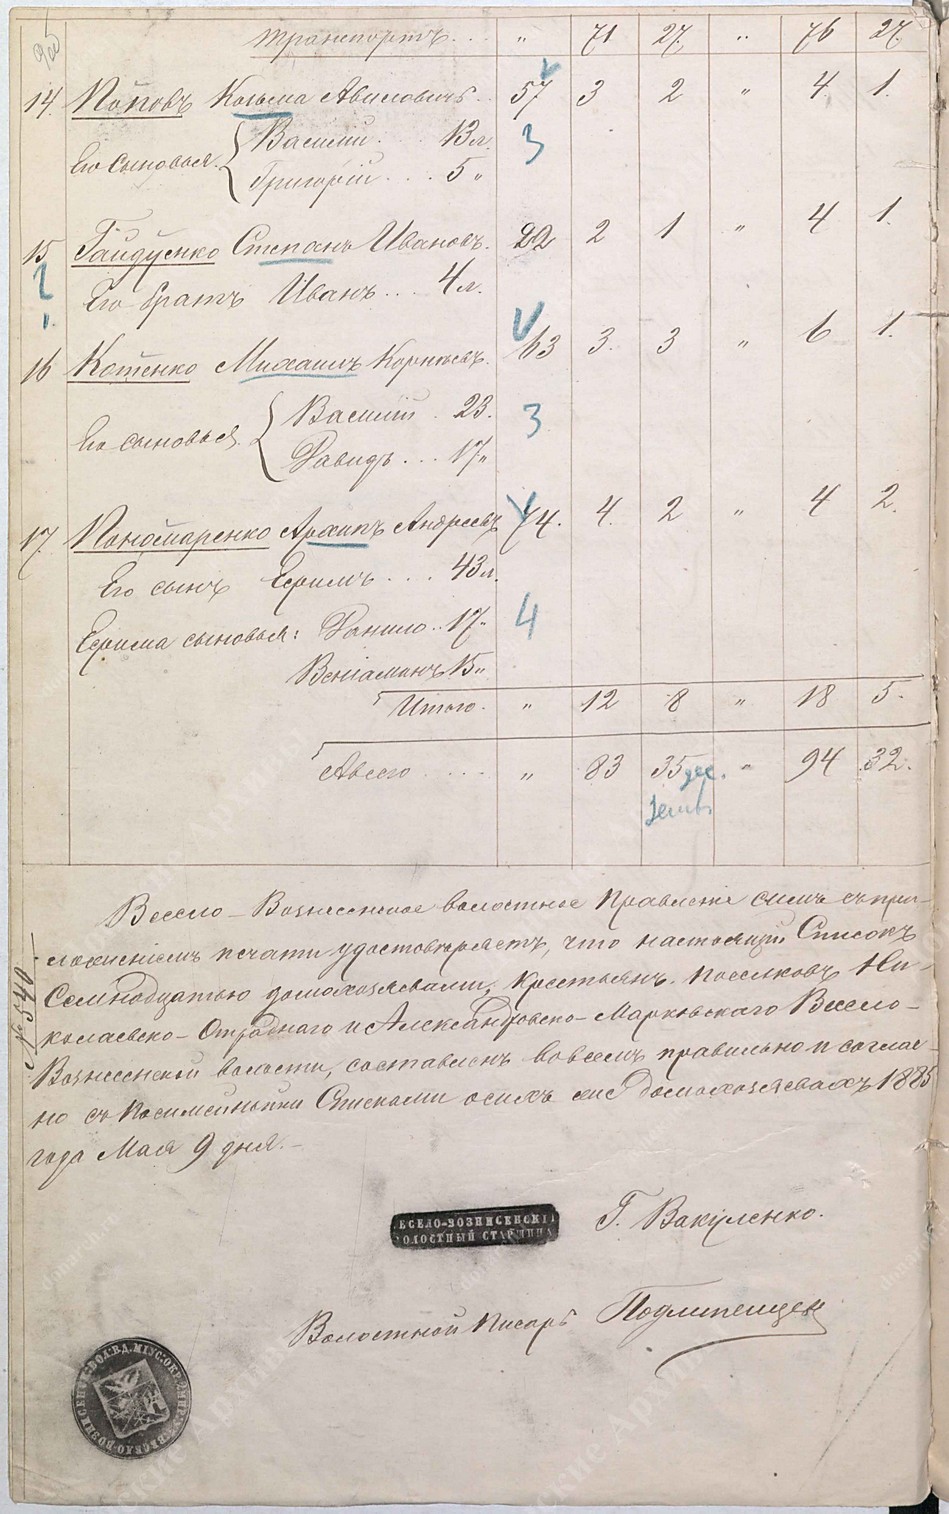 Транспортъ . . . " 71 27 " 76 27
14. Поповъ Козьма Авиловичъ . . 57 3 2 " 4 1.
Его сыновья: Василий . . . 13 л. 3
Григорій . . . 5 "
15 Гайдуенко Степанъ Ивановъ. 22 2 1 " 4 1.
Его братъ Иванъ . . . 4 л.
16 Котенко Михаилъ Корнѣевъ. 63 3. 3 " 6 1.
Его сыновья Василий . 23. 3
Давидъ . . . 17 "
17. Пономаренко Архипъ Андреевъ 74. 4. 2 " 4 2.
Его сынъ Ефимъ . . . 43 л.
Ефима сыновья: Данило . . 17 " 4
Веніаминъ 15 "
Итого. " 12 8 " 18 5.
А всего . . . . " 83 35 дес. " 94 32.
земли
№ 540.
Весело-Вознесенское волостное Правленіе симъ съ при-
ложеніемъ печати удостовѣряетъ, что настоящій Списокъ
Семнадцатью домохозяевами, Крестьянъ. поселковъ Ни-
колаевско-Отраднаго и Александровско-Марковскаго Весело-
Вознесенской волости, составленъ во всемъ правильно и соглас-
но съ Посемейными Списками о сихъ же домохозяевахъ 1885
года Мая 9 дня. -
ЕСЕЛО-ВОЗНИСЕНСКІ
ОЛОСТНЫЙ СТАРШИНА
Г. Вакуленко.
Волостной Писарь Подлипенцев